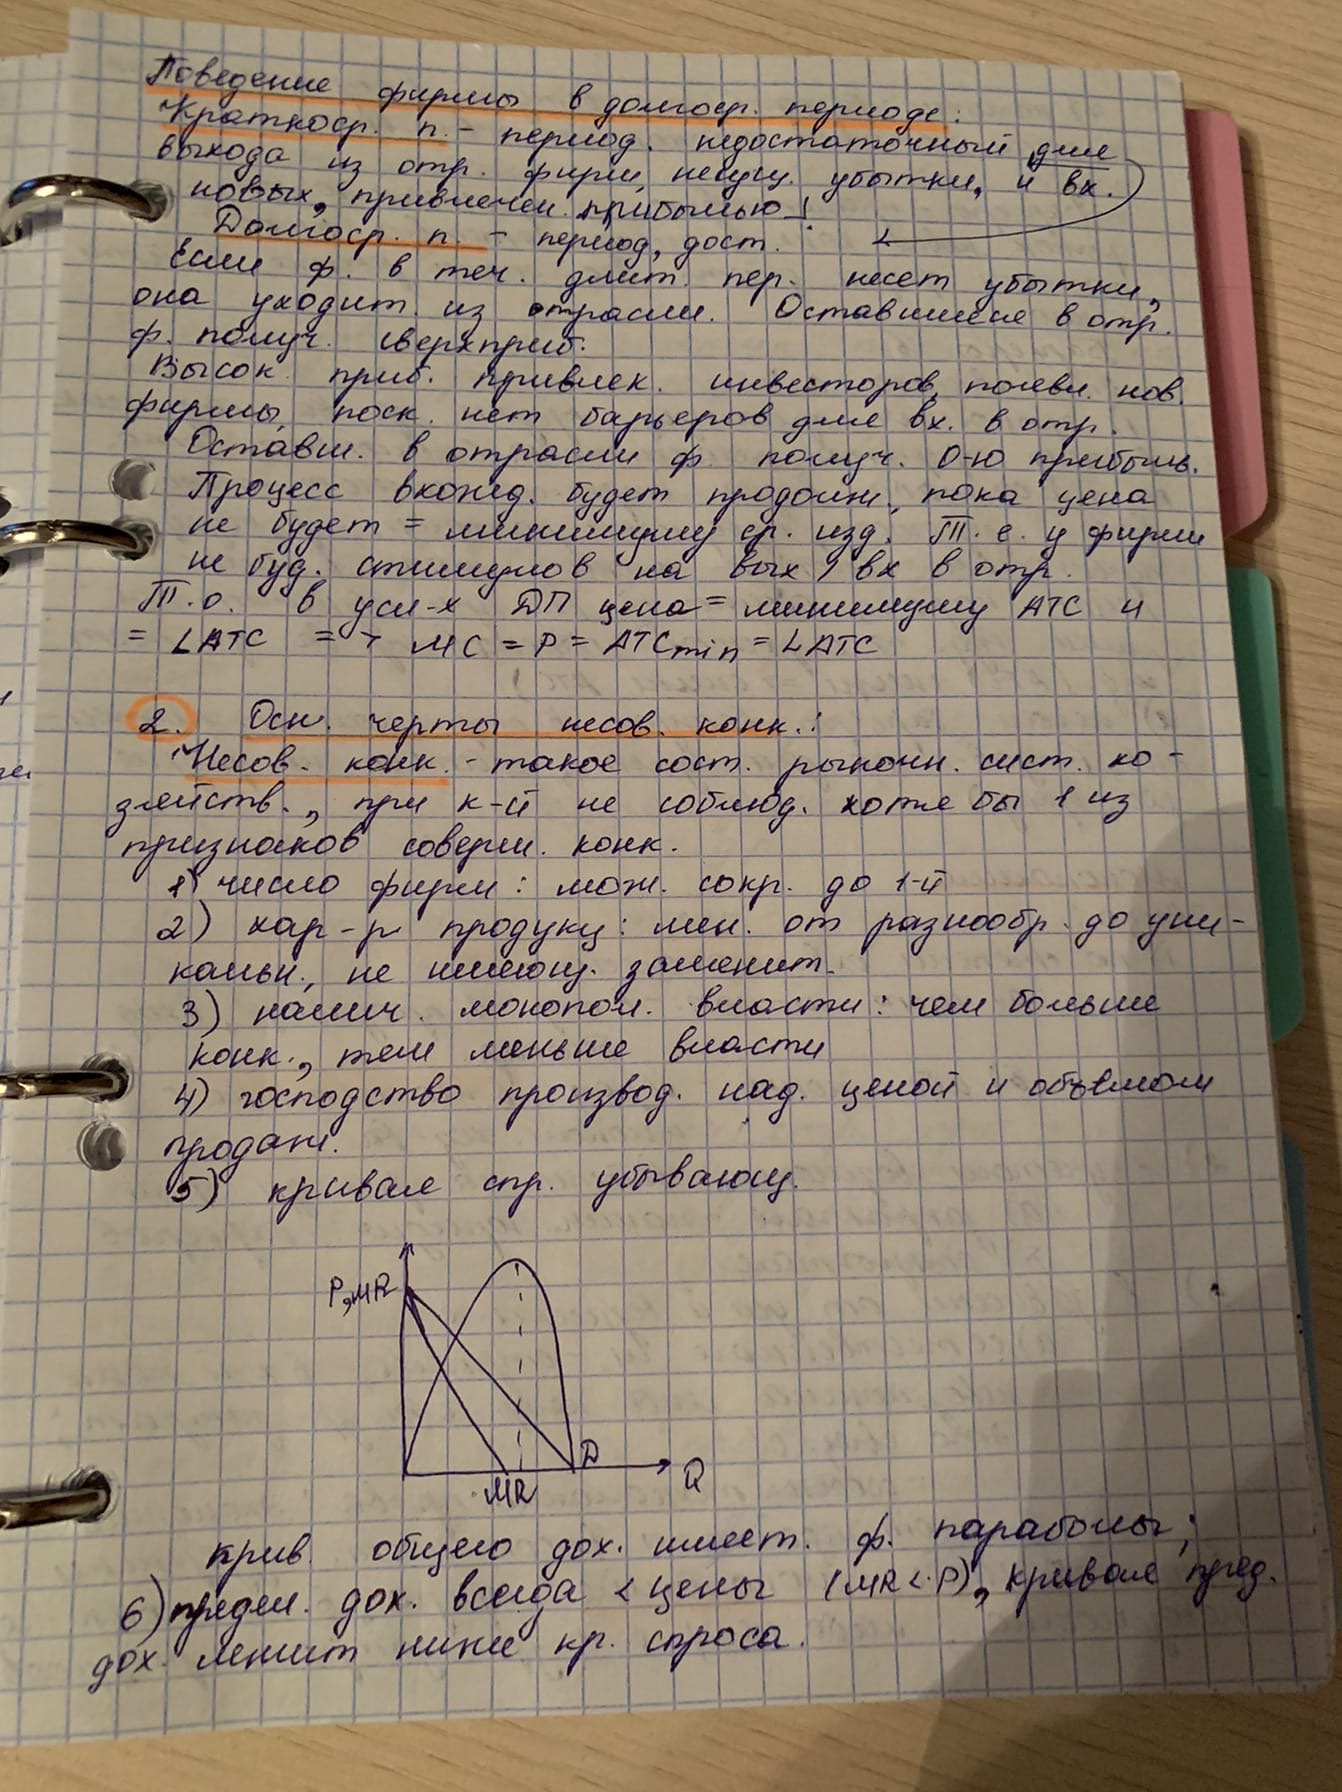 Поведение фирмы в долгоср. периоде:
Краткоср. п. - период, недостаточный для
выхода из отр. фирм, несущ. убытки, и вх.
новых, привлечен. прибылью!
Долгоср. п. - период, дост.
Если ф. в теч. длит. пер. несет убытки,
она уходит из отрасли. Оставшиеся в отр.
ф. получ. сверхприб.
Высок. приб. привлек. инвесторов, появл. нов.
фирмы, поск. нет барьеров для вх. в отр.
Оставш. в отрасли ф. получ. 0-ю прибыль.
Процесс вхожд. будет продолж., пока цена
не будет = минимуму ср. изд. Т.е. у фирм
не буд. стимулов на вых / вх в отр.
Т.о. в усл-х ДП цена = минимуму ATC и
= LATC => MC = P = ATCmin = LATC
2. Осн. черты несов. конк.:
Несов. конк. - такое сост. рыночн. сист. хо-
зяйств., при к-й не соблюд. хотя бы 1 из
признаков соверш. конк.
1) число фирм: мож. сокр. до 1-й
2) хар-р продукц: мен. от разнообр. до уни-
кальн., не имеющ. заменит.
3) налич. монопол. власти: чем больше
конк., тем меньше власти
4) господство производ. над. ценой и объемом
продаж.
5) кривая спр. убывающ.
P, MR
D
MR
Q
крив. общего дох. имеет. ф. параболы;
6) предел. дох. всегда < цены (MR < P), кривая пред.
дох. лежит ниже кр. спроса.